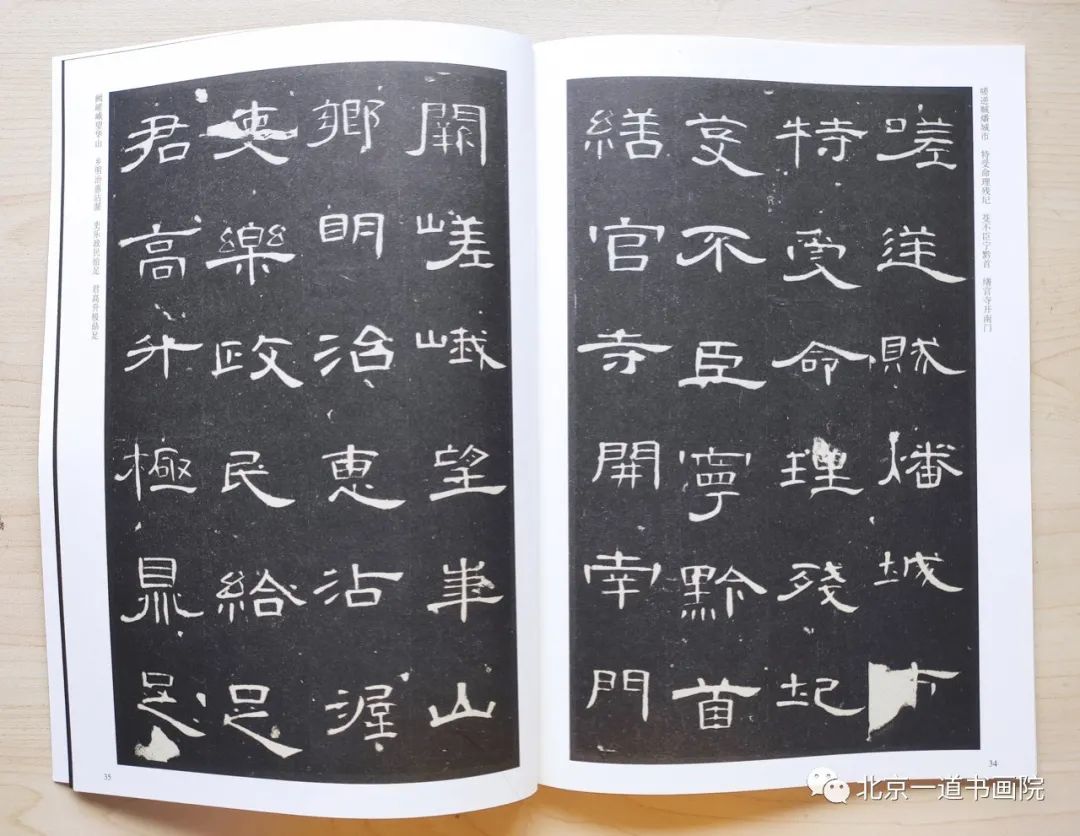 嗟逆贼燔城市 特受命理残圮 芟不臣宁黔首 缮官寺开南门
嗟逆賊燔城市
特受命理殘圮
芟不臣寧黔首
繕官寺開南門
34
闕嵯峨望華山
鄉明治惠沾渥
吏樂政民給足
君高升極鼎足
阙嵯峨望华山 乡明治惠沾渥 吏乐政民给足 君高升极鼎足
35
北京一道书画院